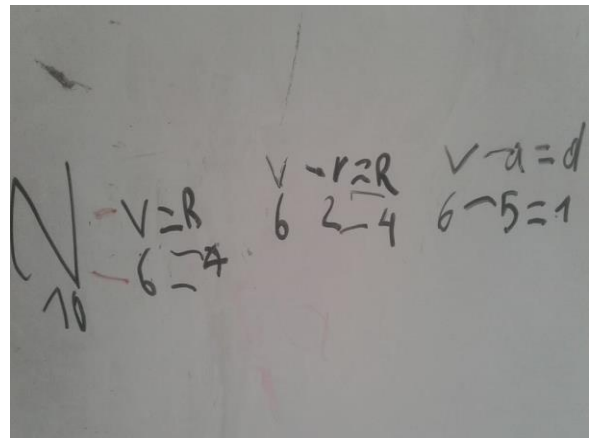 N - V = R
10 - 6 = 4
V - r = R
6 2 = 4
V - a = d
6 - 5 = 1